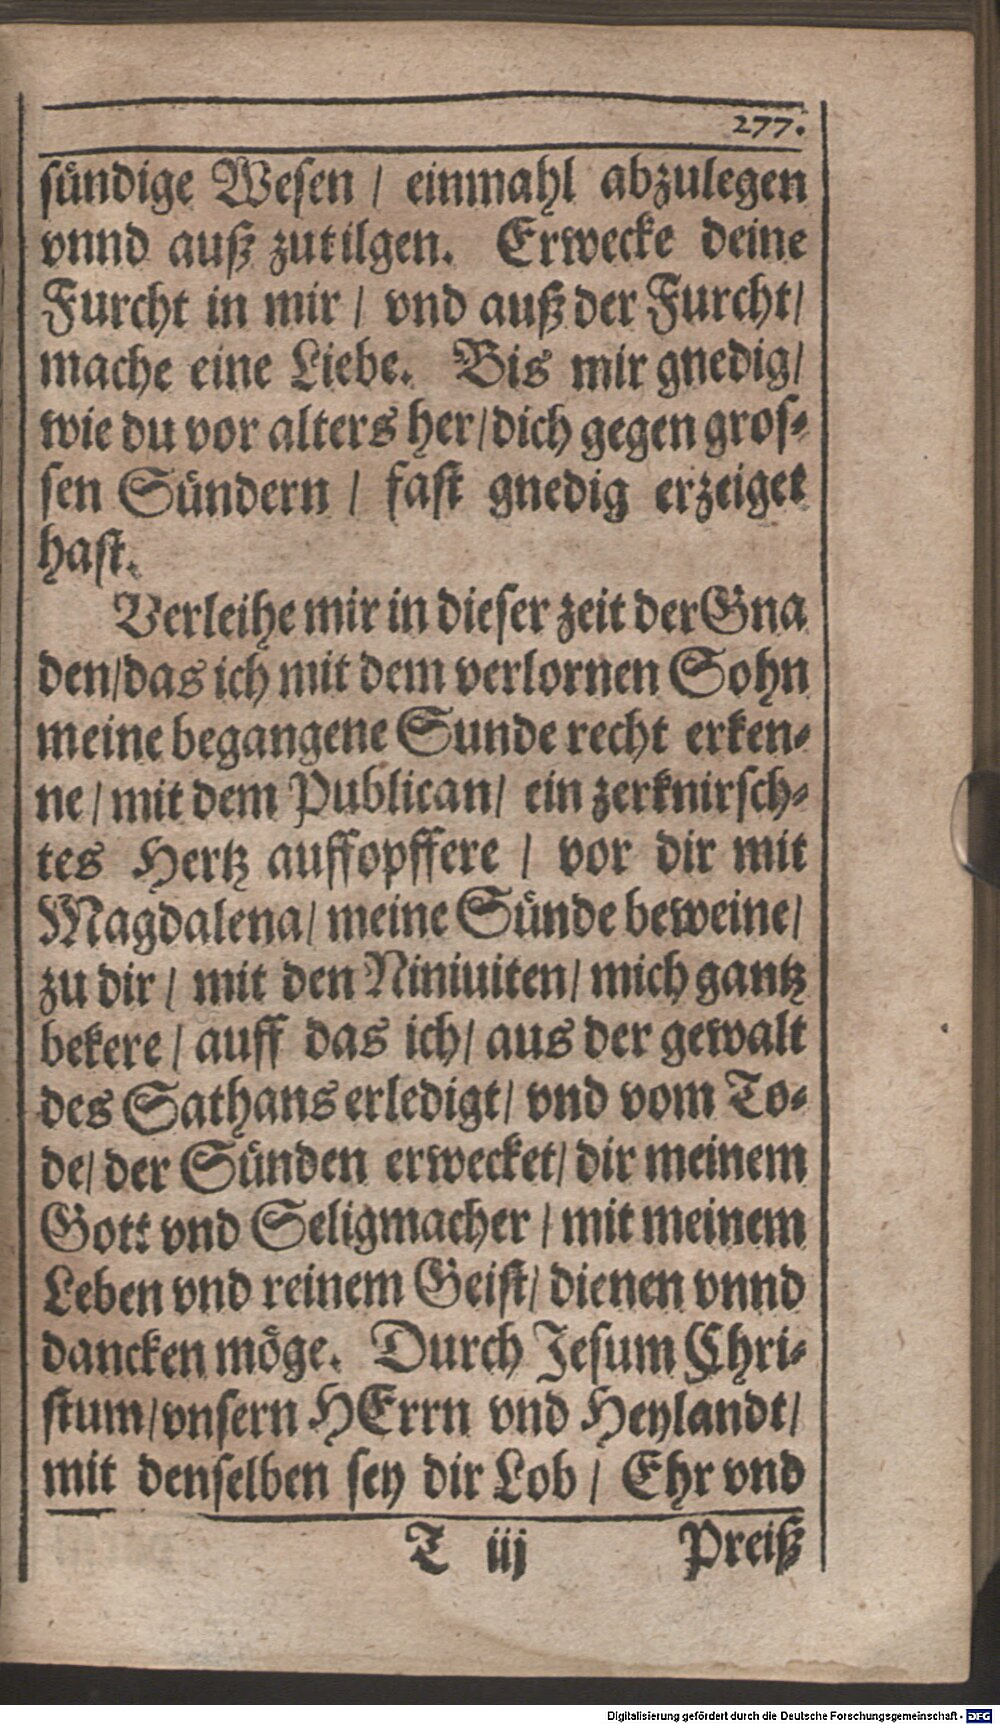 277.
sündige Wesen / einmahl abzulegen
vnnd auß zutilgen. Erwecke deine
Furcht in mir / vnd auß der Furcht /
mache eine Liebe. Bis mir gnedig /
wie du vor alters her / dich gegen gros-
sen Sündern / fast gnedig erzeiget
hast.
Verleihe mir in dieser zeit der Gna
den / das ich mit dem verlornen Sohn
meine begangene Sunde recht erken-
ne / mit dem Publican / ein zerknirsch-
tes Hertz auffopffere / vor dir mit
Magdalena / meine Sünde beweine /
zu dir / mit den Niniuiten / mich gantz
bekere / auff das ich / aus der gewalt
des Sathans erledigt / vnd vom To-
de / der Sünden erwecket / dir meinem
Gott vnd Seligmacher / mit meinem
Leben vnd reinem Geist / dienen vnnd
dancken möge. Durch Jesum Chri-
stum / vnsern HErrn vnd Heylandt /
mit denselben sey dir Lob / Ehr vnd
T iij Preiß
Digitalisierung gefördert durch die Deutsche Forschungsgemeinschaft - DFG